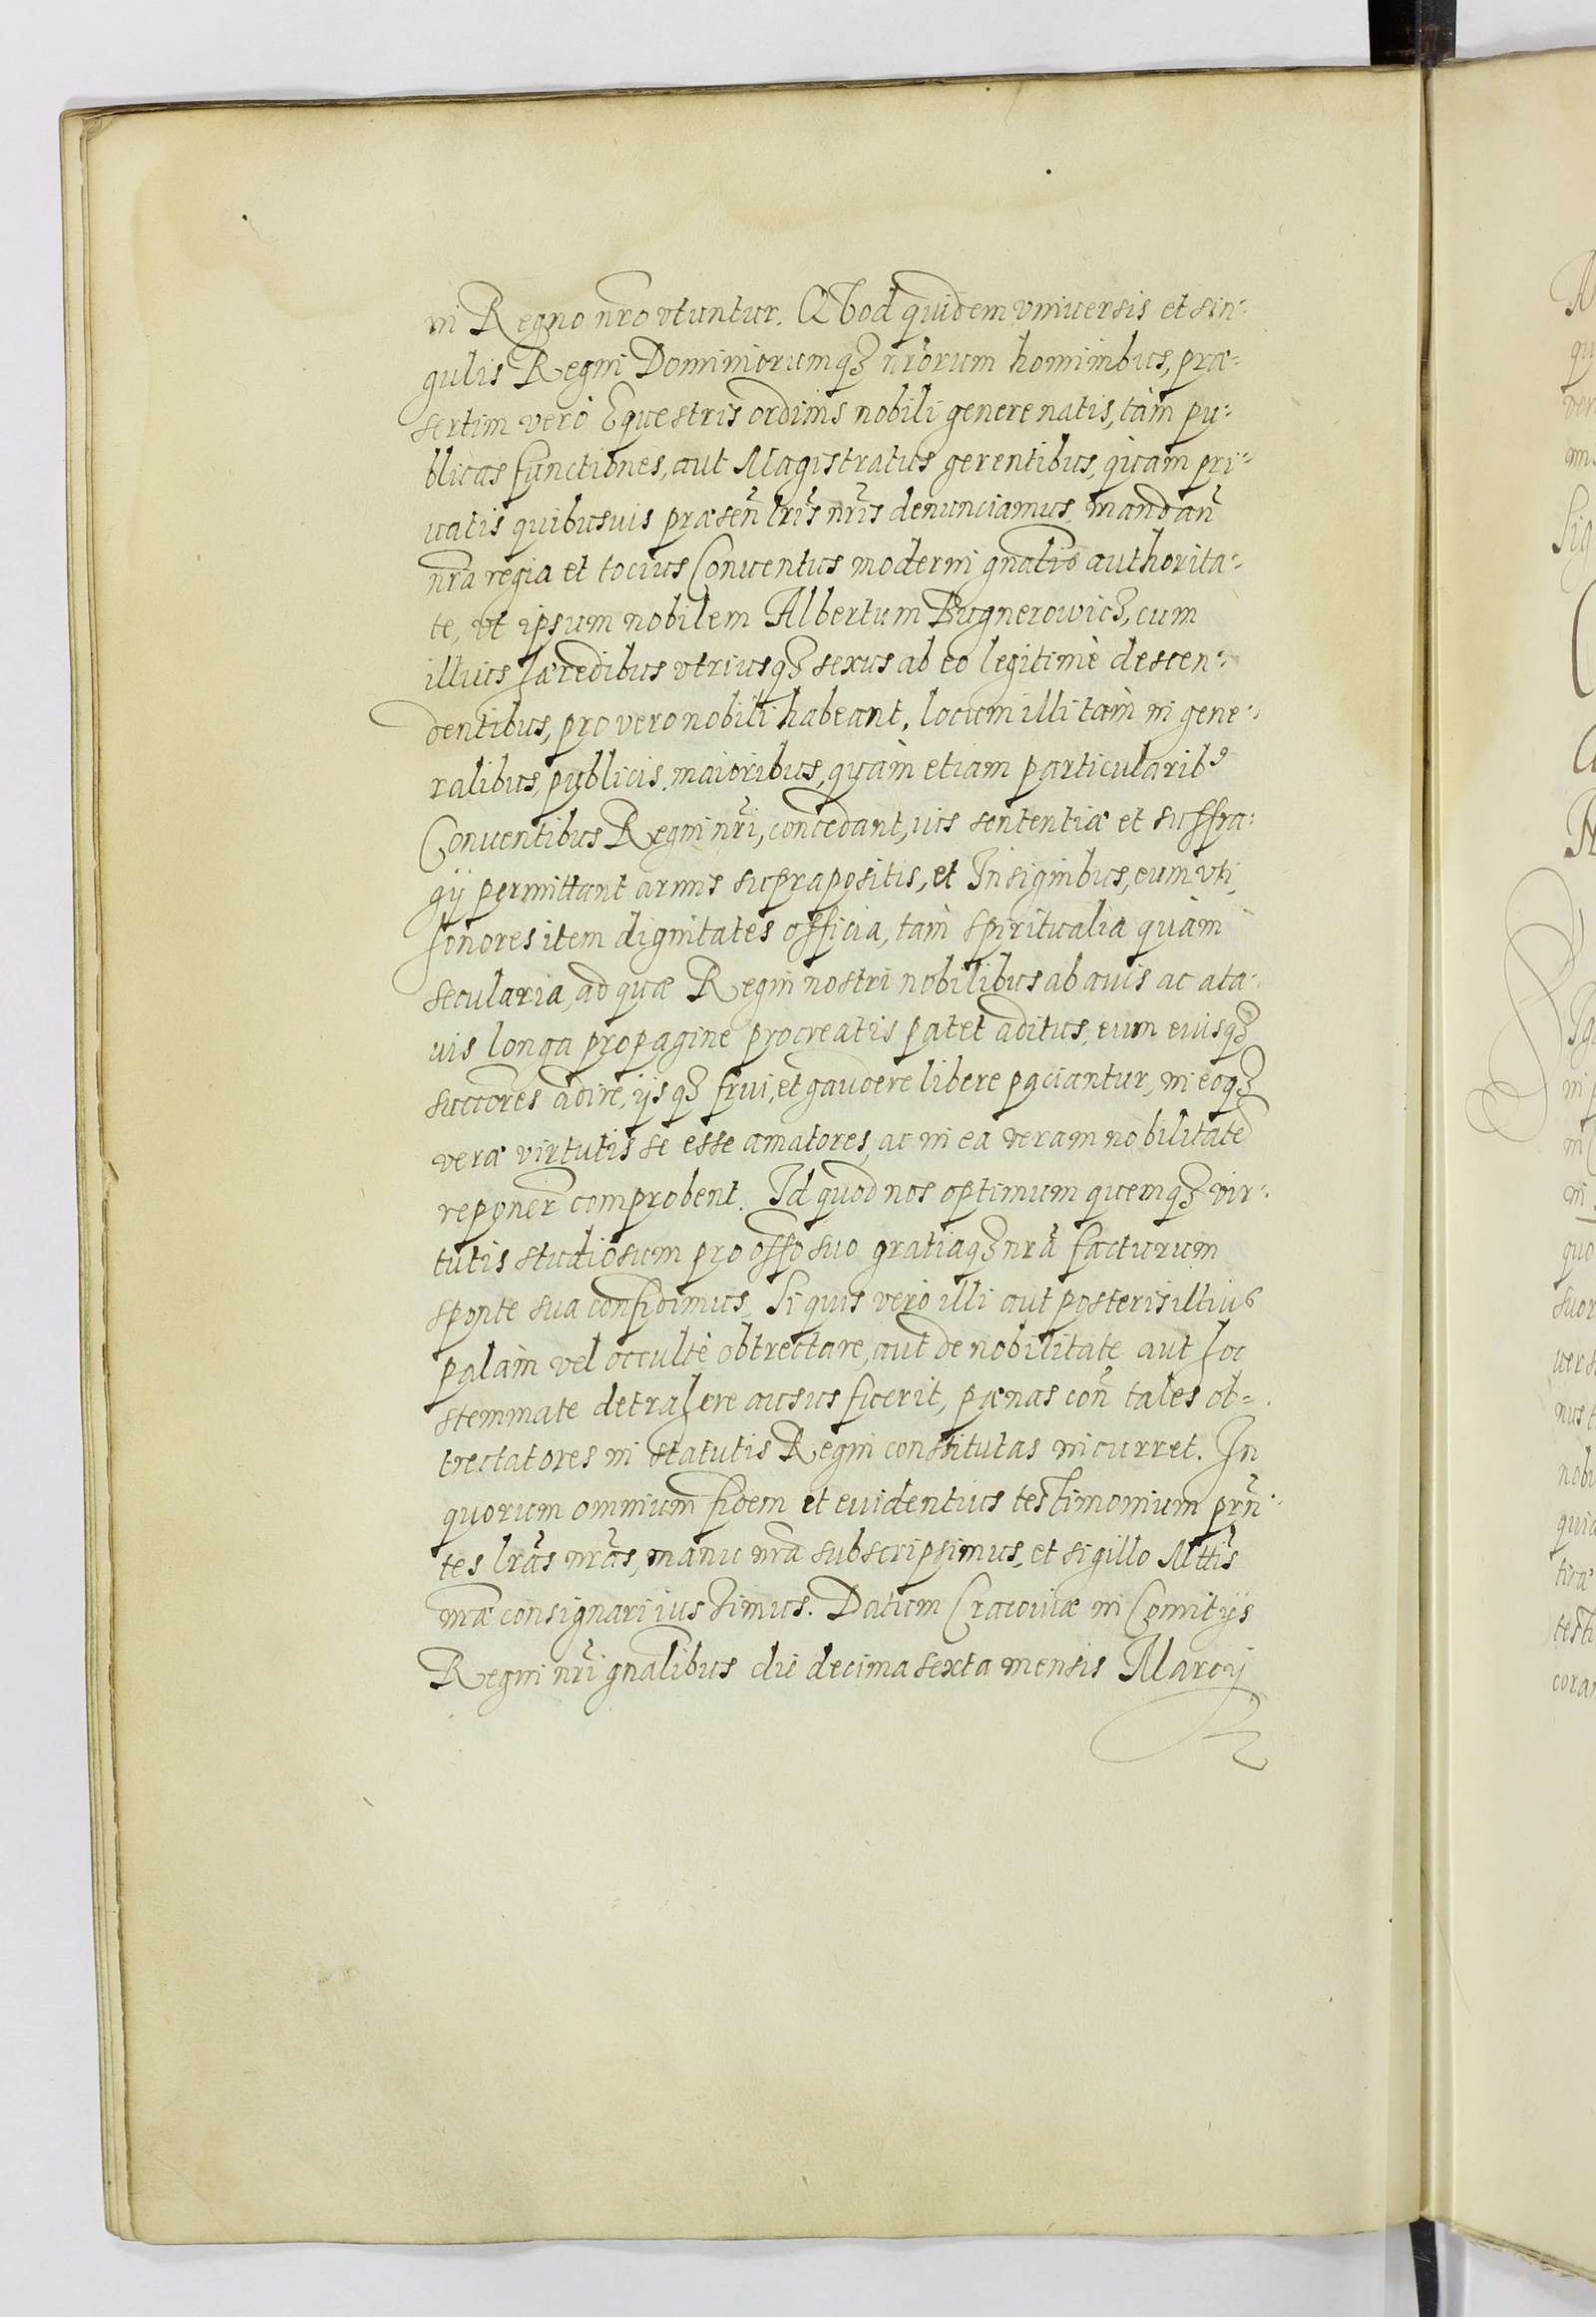 in Regno nr̃o vtuntur. QVod quidem vniuersis et sin-
gulis Regni Dominiorumq3 nr̃orum hominibus, præ-
sertim verò Equestris ordinis nobili genere natis, tàm pu-
blicas functiones, aut Magistratus gerentibus, quam pri-
uatis quibusuis præsen̄ lr̃is nr̃is denunciamus, mandan̄
nr̃a regia et tocius Conuentus moderni gn̄alis authorita-
te, vt ipsum nobilem Albertum Bugnerowic3, cum
illius hæredibus vtriusq3 sexus ab eo legitimè descen-
dentibus, pro vero nobili habeant, locum illi tàm in gene-
ralibus, publicis, maioribus, quàm etiam particularib9
Conuentibus Regni nr̃i, concedant, uis sententiæ et suffra-
gij permittant armis supra positis, et Insignibus, eum vti,
honores item dignitates officia, tàm spiritualia quàm
secularia, ad quæ Regni nostri nobilibus ab auis ac ata-
uis longa propagine procreatis patet aditus, eum eiusq3
succ̄ores adire, ijsq3 frui, et gaudere libere paciantur, in eoq3
veræ virtutis se esse amatores, ac in ea veram nobilitatē
reponer̄ comprobent. Id quod nos optimum quemq3 vir-
tutis studiosum pro off̄o suo gratiaq3 nr̃a facturum
sponte sua confidimus, Si quis verò illi aut posteris illius
palàm vel occultè obtrectare, aut de nobilitate aut hoc
stemmate detrahere ausus fuerit, pænas con̄ tales ob-
trectatores in statutis Regni constitutas incurret. In
quorum omnium fidem et euidentius testimonium pr̃n-
tes lr̃as nr̃as, manu nr̃a subscripsimus, et sigillo Mttis
nr̃æ consignari iussimus. Datum Cracouiæ in Comitijs
Regni nr̃i gn̄alibus die decima sexta mensis Marcij